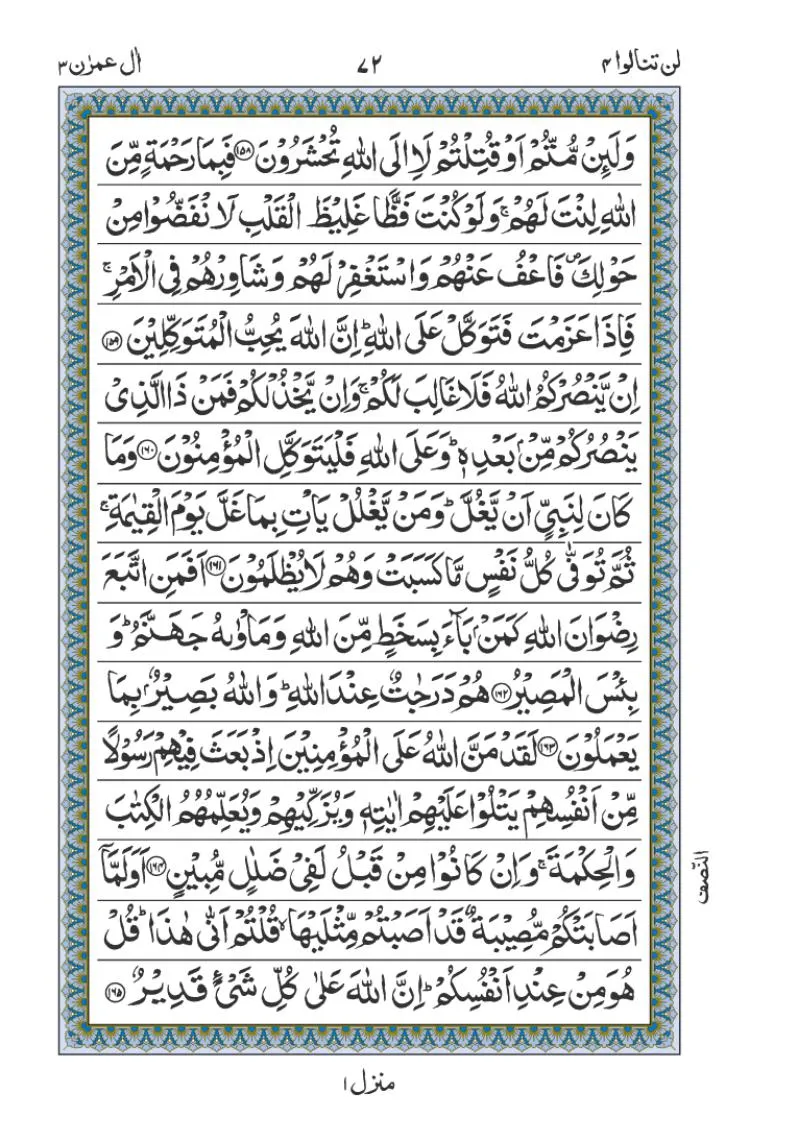 لن تنالوا ۴ ۷۲ اٰل عمرٰن ۳
وَلَئِنْ مُّتُّمْ اَوْ قُتِلْتُمْ لَاِالَى اللّٰهِ تُحْشَرُوْنَ ﴿۱۵۸﴾ فَبِمَا رَحْمَةٍ مِّنَ
اللّٰهِ لِنْتَ لَهُمْ ۚ وَلَوْ كُنْتَ فَظًّا غَلِيْظَ الْقَلْبِ لَانْفَضُّوْا مِنْ
حَوْلِكَ ۪ فَاعْفُ عَنْهُمْ وَاسْتَغْفِرْ لَهُمْ وَشَاوِرْهُمْ فِى الْاَمْرِ ۚ
فَاِذَا عَزَمْتَ فَتَوَكَّلْ عَلَى اللّٰهِ ؕ اِنَّ اللّٰهَ يُحِبُّ الْمُتَوَكِّلِيْنَ ﴿۱۵۹﴾
اِنْ يَّنْصُرْكُمُ اللّٰهُ فَلَا غَالِبَ لَكُمْ ۚ وَاِنْ يَّخْذُلْكُمْ فَمَنْ ذَا الَّذِىْ
يَنْصُرُكُمْ مِّنْۢ بَعْدِهٖ ؕ وَعَلَى اللّٰهِ فَلْيَتَوَكَّلِ الْمُؤْمِنُوْنَ ﴿۱۶۰﴾ وَمَا
كَانَ لِنَبِىٍّ اَنْ يَّغُلَّ ؕ وَمَنْ يَّغْلُلْ يَاْتِ بِمَا غَلَّ يَوْمَ الْقِيٰمَةِ ۚ
ثُمَّ تُوَفّٰى كُلُّ نَفْسٍ مَّا كَسَبَتْ وَهُمْ لَا يُظْلَمُوْنَ ﴿۱۶۱﴾ اَفَمَنِ اتَّبَعَ
رِضْوَانَ اللّٰهِ كَمَنْۢ بَآءَ بِسَخَطٍ مِّنَ اللّٰهِ وَمَاْوٰىهُ جَهَنَّمُ ؕ وَ
بِئْسَ الْمَصِيْرُ ﴿۱۶۲﴾ هُمْ دَرَجٰتٌ عِنْدَ اللّٰهِ ؕ وَاللّٰهُ بَصِيْرٌۢ بِمَا
يَعْمَلُوْنَ ﴿۱۶۳﴾ لَقَدْ مَنَّ اللّٰهُ عَلَى الْمُؤْمِنِيْنَ اِذْ بَعَثَ فِيْهِمْ رَسُوْلًا
مِّنْ اَنْفُسِهِمْ يَتْلُوْا عَلَيْهِمْ اٰيٰتِهٖ وَيُزَكِّيْهِمْ وَيُعَلِّمُهُمُ الْكِتٰبَ
وَالْحِكْمَةَ ۚ وَاِنْ كَانُوْا مِنْ قَبْلُ لَفِىْ ضَلٰلٍ مُّبِيْنٍ ﴿۱۶۴﴾ اَوَلَمَّاۤ
اَصَابَتْكُمْ مُّصِيْبَةٌ قَدْ اَصَبْتُمْ مِّثْلَيْهَا ۙ قُلْتُمْ اَنّٰى هٰذَا ؕ قُلْ
هُوَ مِنْ عِنْدِ اَنْفُسِكُمْ ؕ اِنَّ اللّٰهَ عَلٰى كُلِّ شَىْءٍ قَدِيْرٌ ﴿۱۶۵﴾
النّصف
منزل ۱